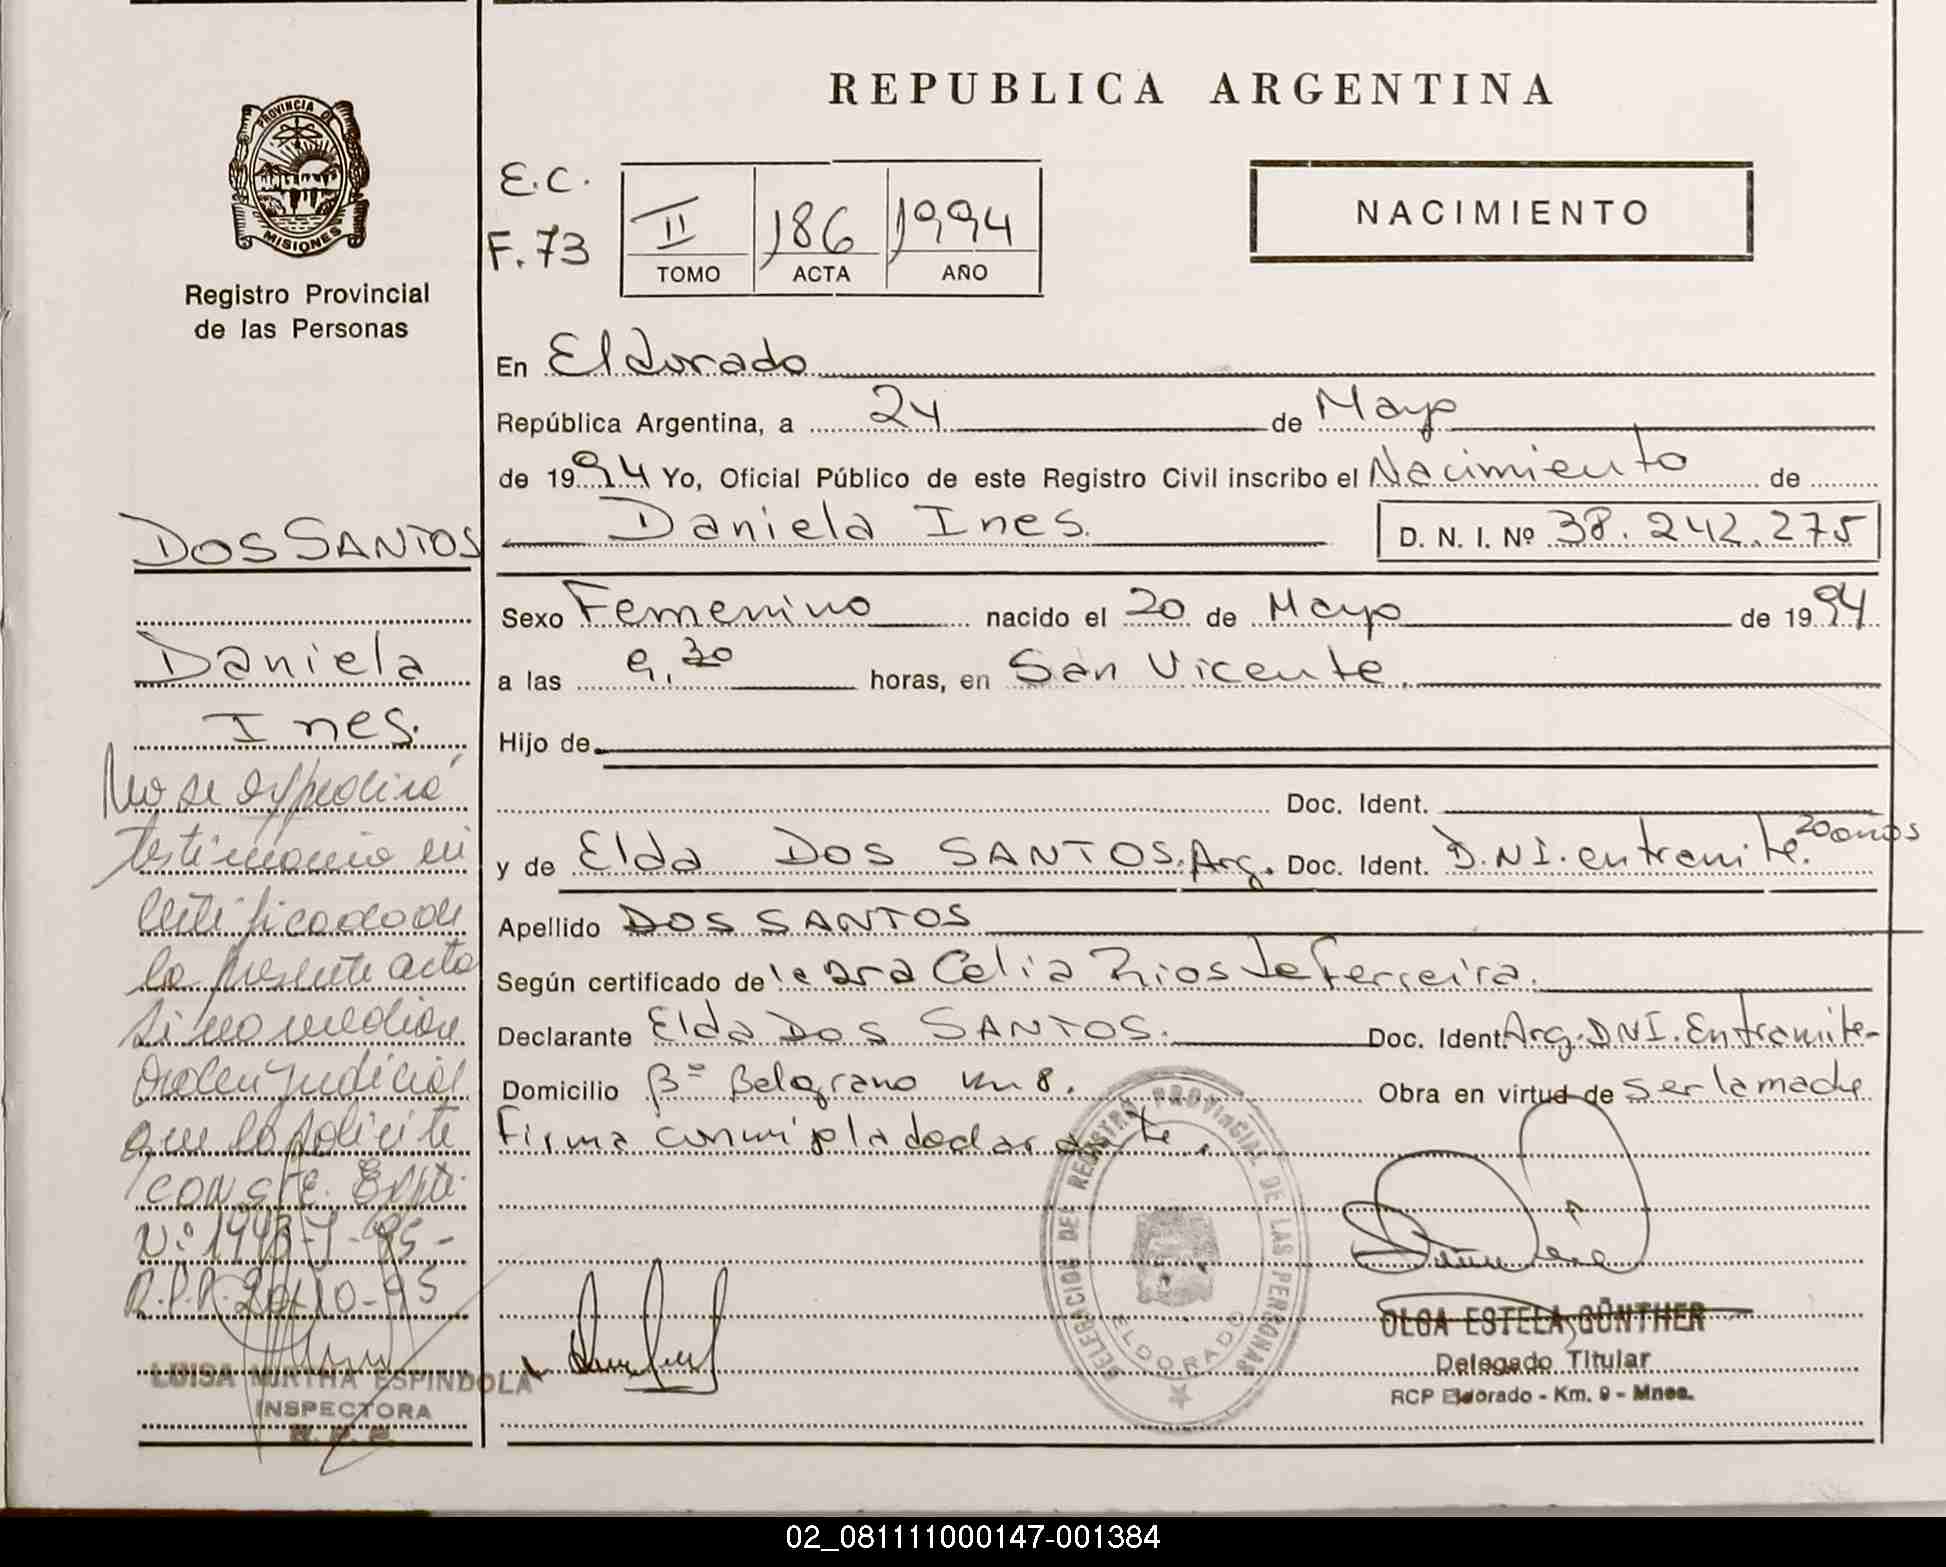 REPUBLICA ARGENTINA
PROVINCIA DE
MISIONES
Registro Provincial
de las Personas
E.C.
F. 73
II 186 1994
TOMO ACTA AÑO
NACIMIENTO
En Eldorado
República Argentina, a 24 de Mayo
de 1994 Yo, Oficial Público de este Registro Civil inscribo el Nacimiento de
Daniela Ines. D. N. I. Nº 38.242.275
Sexo Femenino nacido el 20 de Mayo de 1994
a las 9,30 horas, en San Vicente.
Hijo de
Doc. Ident.
y de Elda DOS SANTOS. Arg. Doc. Ident. D.N.I. en tramite. 20 años
Apellido DOS SANTOS
Según certificado de la Dra Celia Rios de Ferreira.
Declarante Elda DOS SANTOS. Doc. Ident. Arg. DNI. En tramite-
Domicilio Bº Belgrano Km 8. Obra en virtud de ser la madre
Firma conmigo la declarante.
DOS SANTOS
Daniela
Ines.
No se expedirá
testimonio ni
certificado de
la presente acta
si no media
orden judicial
que lo solicite
CONSTE. Expte.
R.P.P. 20-10-95
LUISA MIRTHA ESPINDOLA
INSPECTORA
R. P. P.
DELEGACION DEL REGISTRO PROVINCIAL DE LAS PERSONAS
ELDORADO
OLGA ESTELA GÜNTHER
Delegado Titular
RCP Eldorado - Km. 9 - Mnes.
02_081111000147-001384